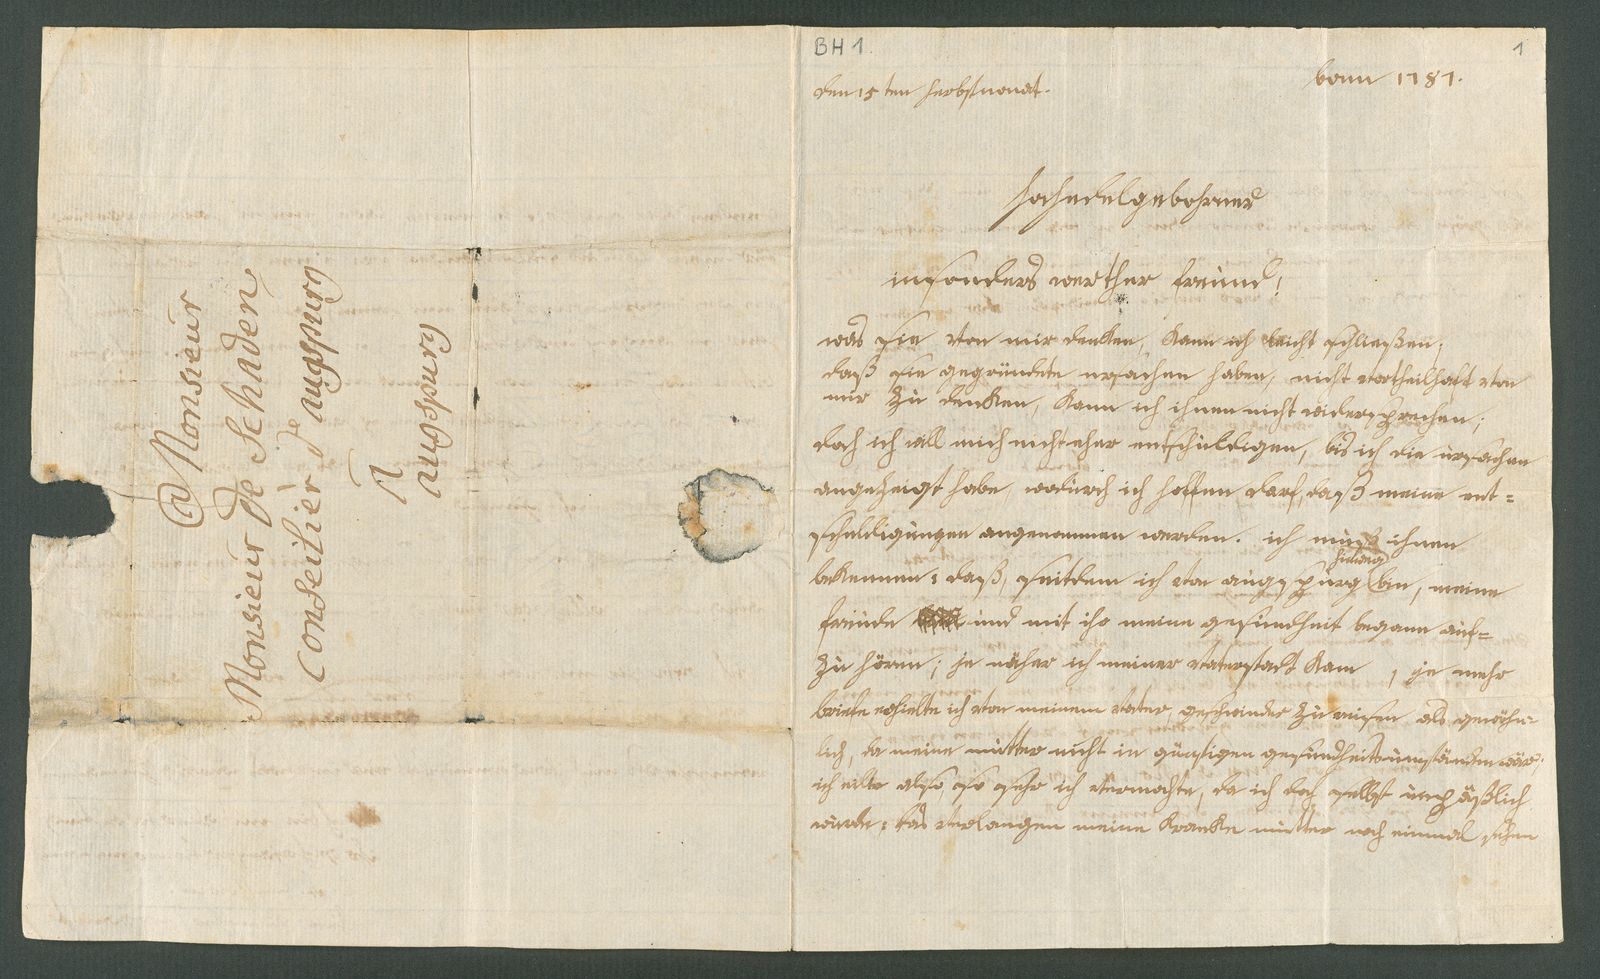 @ Monsieur
Monsieur de Schaden
conseilier d' augspurg
à
augspurg
BH 1.
1
den 15ten herbstmonat.
bonn 1787.
hochedelgebohrner
insonders werther freund!
was sie von mir denken, kann ich leicht schließen;
daß sie gegründete ursachen haben, nicht vortheilhaft von
mir zu denken, kann ich ihnen nicht widersprechen;
doch ich will mich nicht eher entschuldigen, bis ich die ursachen
angezeigt habe, wodurch ich hoffen darf, daß meine ent=
schuldigungen angenommen werden. ich muß ihnen
bekennen: daß, seitdem ich von augspurg hinweg bin, meine
freude und mit ihr meine gesundheit begann auf=
zu hören; je näher ich meiner vaterstadt kam, je mehr
briefe erhielte ich von meinem vater, geschwinder zu reisen als gewöhn=
lich, da meine mutter nicht in günstigen gesundheitsumständen wär;
ich eilte also, so sehr ich vermochte, da ich doch selbst unpäßlich
wurde: das verlangen meine kranke mutter noch einmal sehen